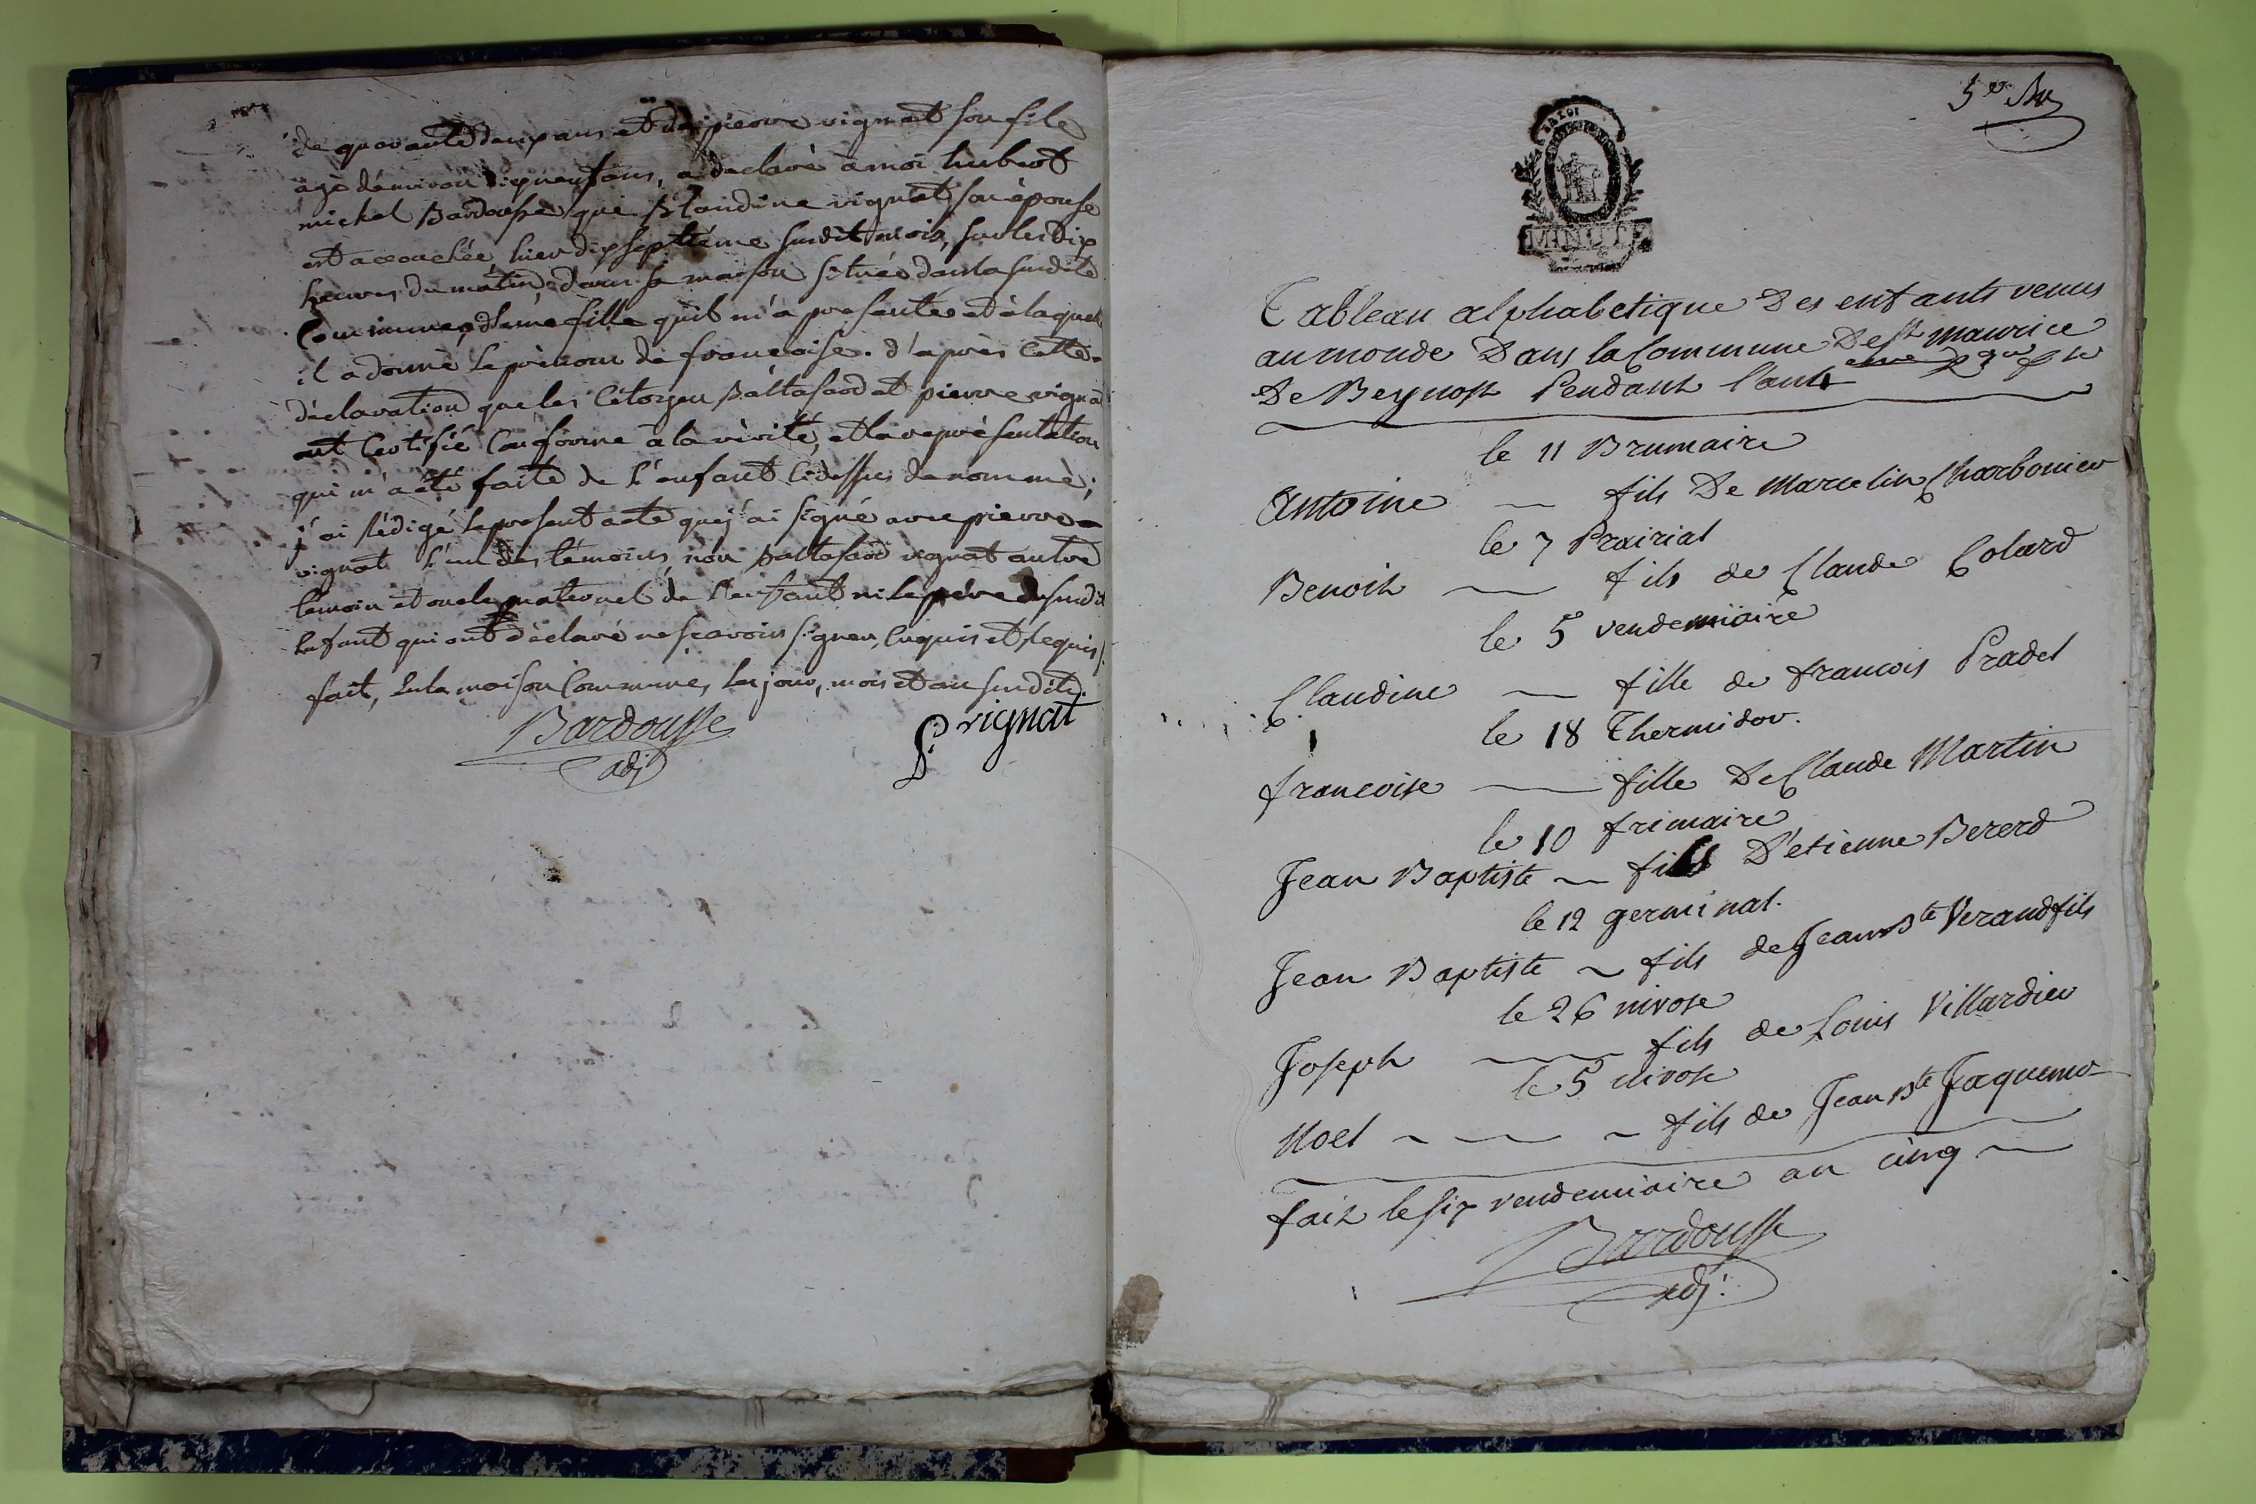 de quarante deux ans et de pierre vignat son fils
agé d'environ dix neuf ans, a declaré à moi hubert
michel Bardousse que Blandine vignat son épouse
est accouchée hier dix septième susdit mois, sur les dix
heures du matin, dans sa maison située dans la susdite
Commune, d'une fille qu'il m'a presentée et à laquel
il a donné le prénom de francoise. d'après cette
déclaration que les Citoyen Baltasard et pierre vignat
ont Certifié Conforme a la vérité, et la représentation
qui m'a été faite de l'enfant Cidessus denommé;
j'ai Rédigé le present acte que j'ai signé avec pierre
vignat l'un des témoins, non Baltasard vignat autre
témoin et oncle maternel de l'enfant ni le père du susdit
Enfant qui ont déclaré ne scavoir signer, Enquis et Requis.
fait, En la maison Commune, les jour, mois et an susdits.
Bardousse
adj
P. vignat
5 er
MINUT
Tableau alphabetique Des enfants venus
au monde Dans la Commune De st maurice
De Beynost Pendant l'an 4
le 11 Brumaire
Antoine — fils De Marcelin Charbonier
le 7 Prairial
Benoit — fils de Claude Colard
le 5 vendemiaire
Claudine — fille de francois Pradel
le 18 Thermidor.
francoise — fille De Claude Martin
le 10 frimaire
Jean Baptiste — fils D'etienne Bererd
le 12 germinal.
Jean Baptiste ~ fils de Jean Bte Verand fils
le 26 nivose
Joseph — fils de Louis Villardier
le 5 nivose
Noel ~ — ~ fils de Jean Bte Jaquemo
fait le six vendemiaire an cinq —
Bardousse
adj: